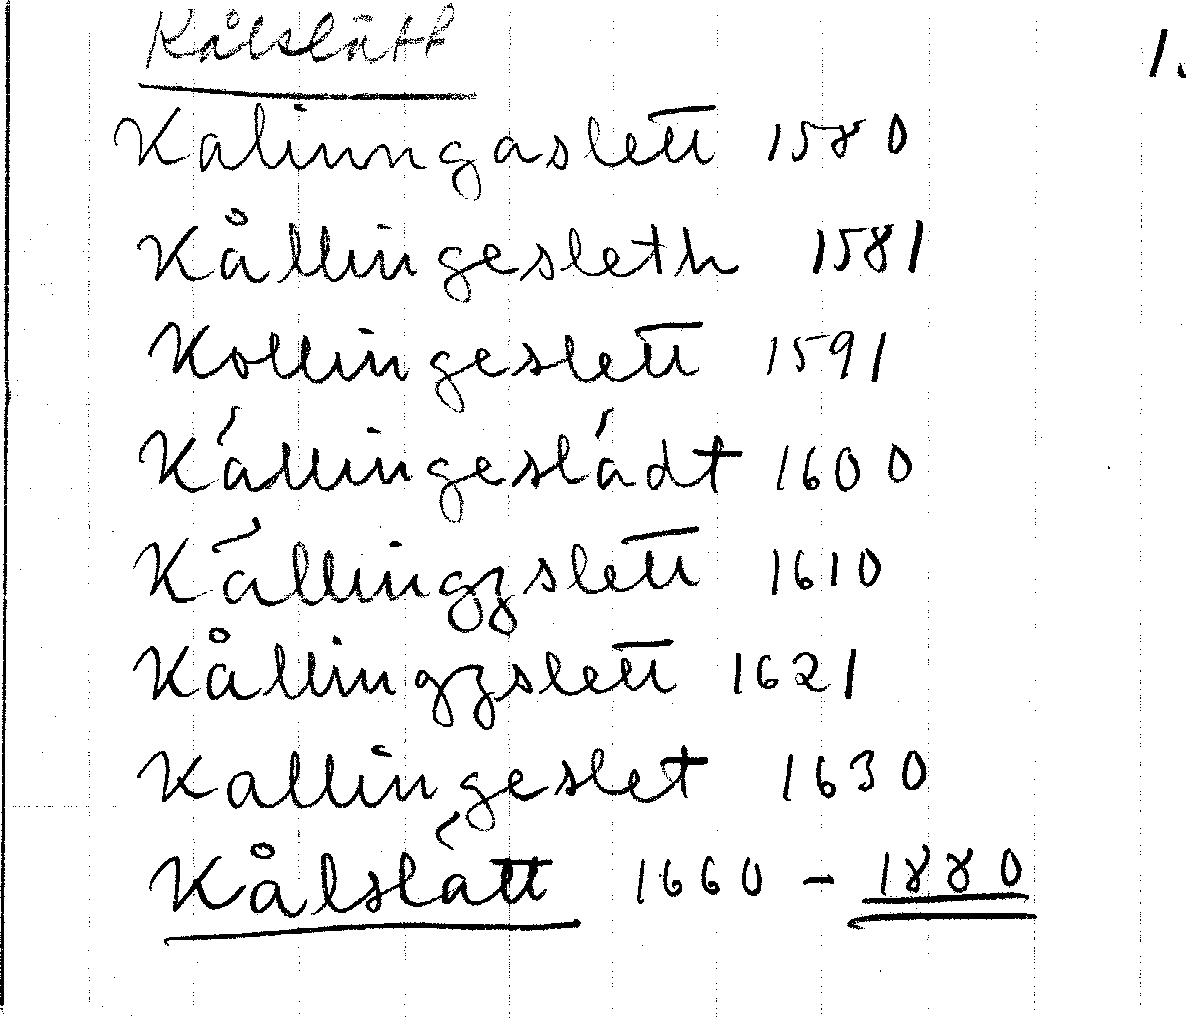 Kålslätt 1.
Kalinngaslett 1580
Kållingesleth 1581
Kollingeslett 1591
Källingeslädt 1600
Källingzslett 1610
Kållingzslett 1621
Kallingeslet 1630
Kålslätt 1660 - 1880